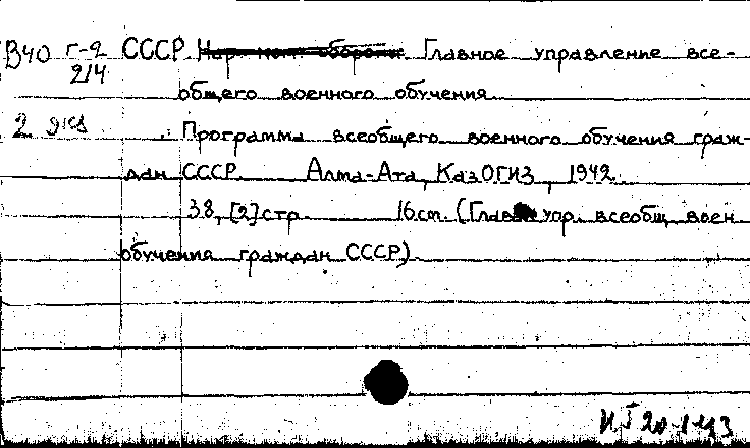 В40 г-2 СССР. Нар. ком. обороны. Главное управление все-
2/4
общего военного обучения.
2 экз
Программа всеобщего военного обучения граж-
дан СССР. Алма-Ата, КазОГИЗ, 1942.
38, [2] стр. 16см. (Глав. упр. всеобщ. воен.
обучения граждан СССР)